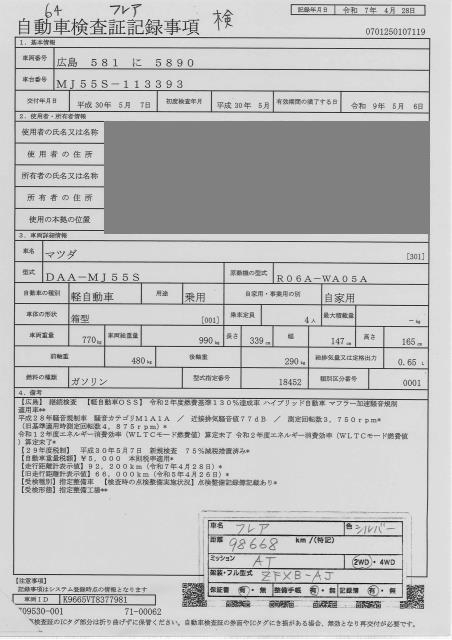 64 フレア 検
記録年月日 令和 7年 4月 28日
自動車検査証記録事項
0701250107119
1. 基本情報
車両番号 広島 581 に 5890
車台番号 MJ55S-113393
交付年月日 平成30年 5月 7日 初度検査年月 平成30年 5月 有効期間の満了する日 令和 9年 5月 6日
2. 使用者・所有者情報
使用者の氏名又は名称
使用者の住所
所有者の氏名又は名称
所有者の住所
使用の本拠の位置
3. 車両詳細情報
車名 マツダ [301]
型式 DAA-MJ55S 原動機の型式 R06A-WA05A
自動車の種別 軽自動車 用途 乗用 自家用・事業用の別 自家用
車体の形状 箱型 [001] 乗車定員 4人 最大積載量 -kg
車両重量 770kg 車両総重量 990kg 長さ 339cm 幅 147cm 高さ 165cm
前軸重 480kg 後軸重 290kg 総排気量又は定格出力 0.65 L
燃料の種類 ガソリン 型式指定番号 18452 類別区分番号 0001
4. 備考
【広島】 継続検査 【軽自動車OSS】 令和2年度燃費基準130%達成車 ハイブリッド自動車 マフラー加速騒音規制
適用車**
平成28年騒音規制車 騒音カテゴリM1A1A / 近接排気騒音値77dB / 測定回転数3,750rpm*
(旧基準適用時測定回転数4,875rpm)*
令和12年度エネルギー消費効率(WLTCモード燃費値)算定未了 令和2年度エネルギー消費効率(WLTCモード燃費値
)算定未了*
【29年度税制】 平成30年5月7日 新規検査 75%減税措置済み*
【自動車重量税額】¥5,000 本則税率適用*
【走行距離計表示値】92,200km(令和7年4月28日)*
【旧走行距離計表示値】66,000km(令和5年4月26日)*
【受検種別】指定整備車 【検査時の点検整備実施状況】点検整備記録簿記載あり*
【受検形態】指定整備工場**
車名 フレア 色 シルバー
距離 98668 km/(特記)
ミッション AT 2WD・4WD
架装・フル型式 ZFXB-AJ
保証書 有・無 整備手帳 有・無 記録簿 有・無
【注意事項】
記録事項はシステム登録時点の情報となります
車両ID K9665VT8377981
709530-001 71-00062
*検査証のICタグ部分は折り曲げずに保管ください。自動車検査証の券面やICタグに き損がある場合、無効となり再交付が必要です。